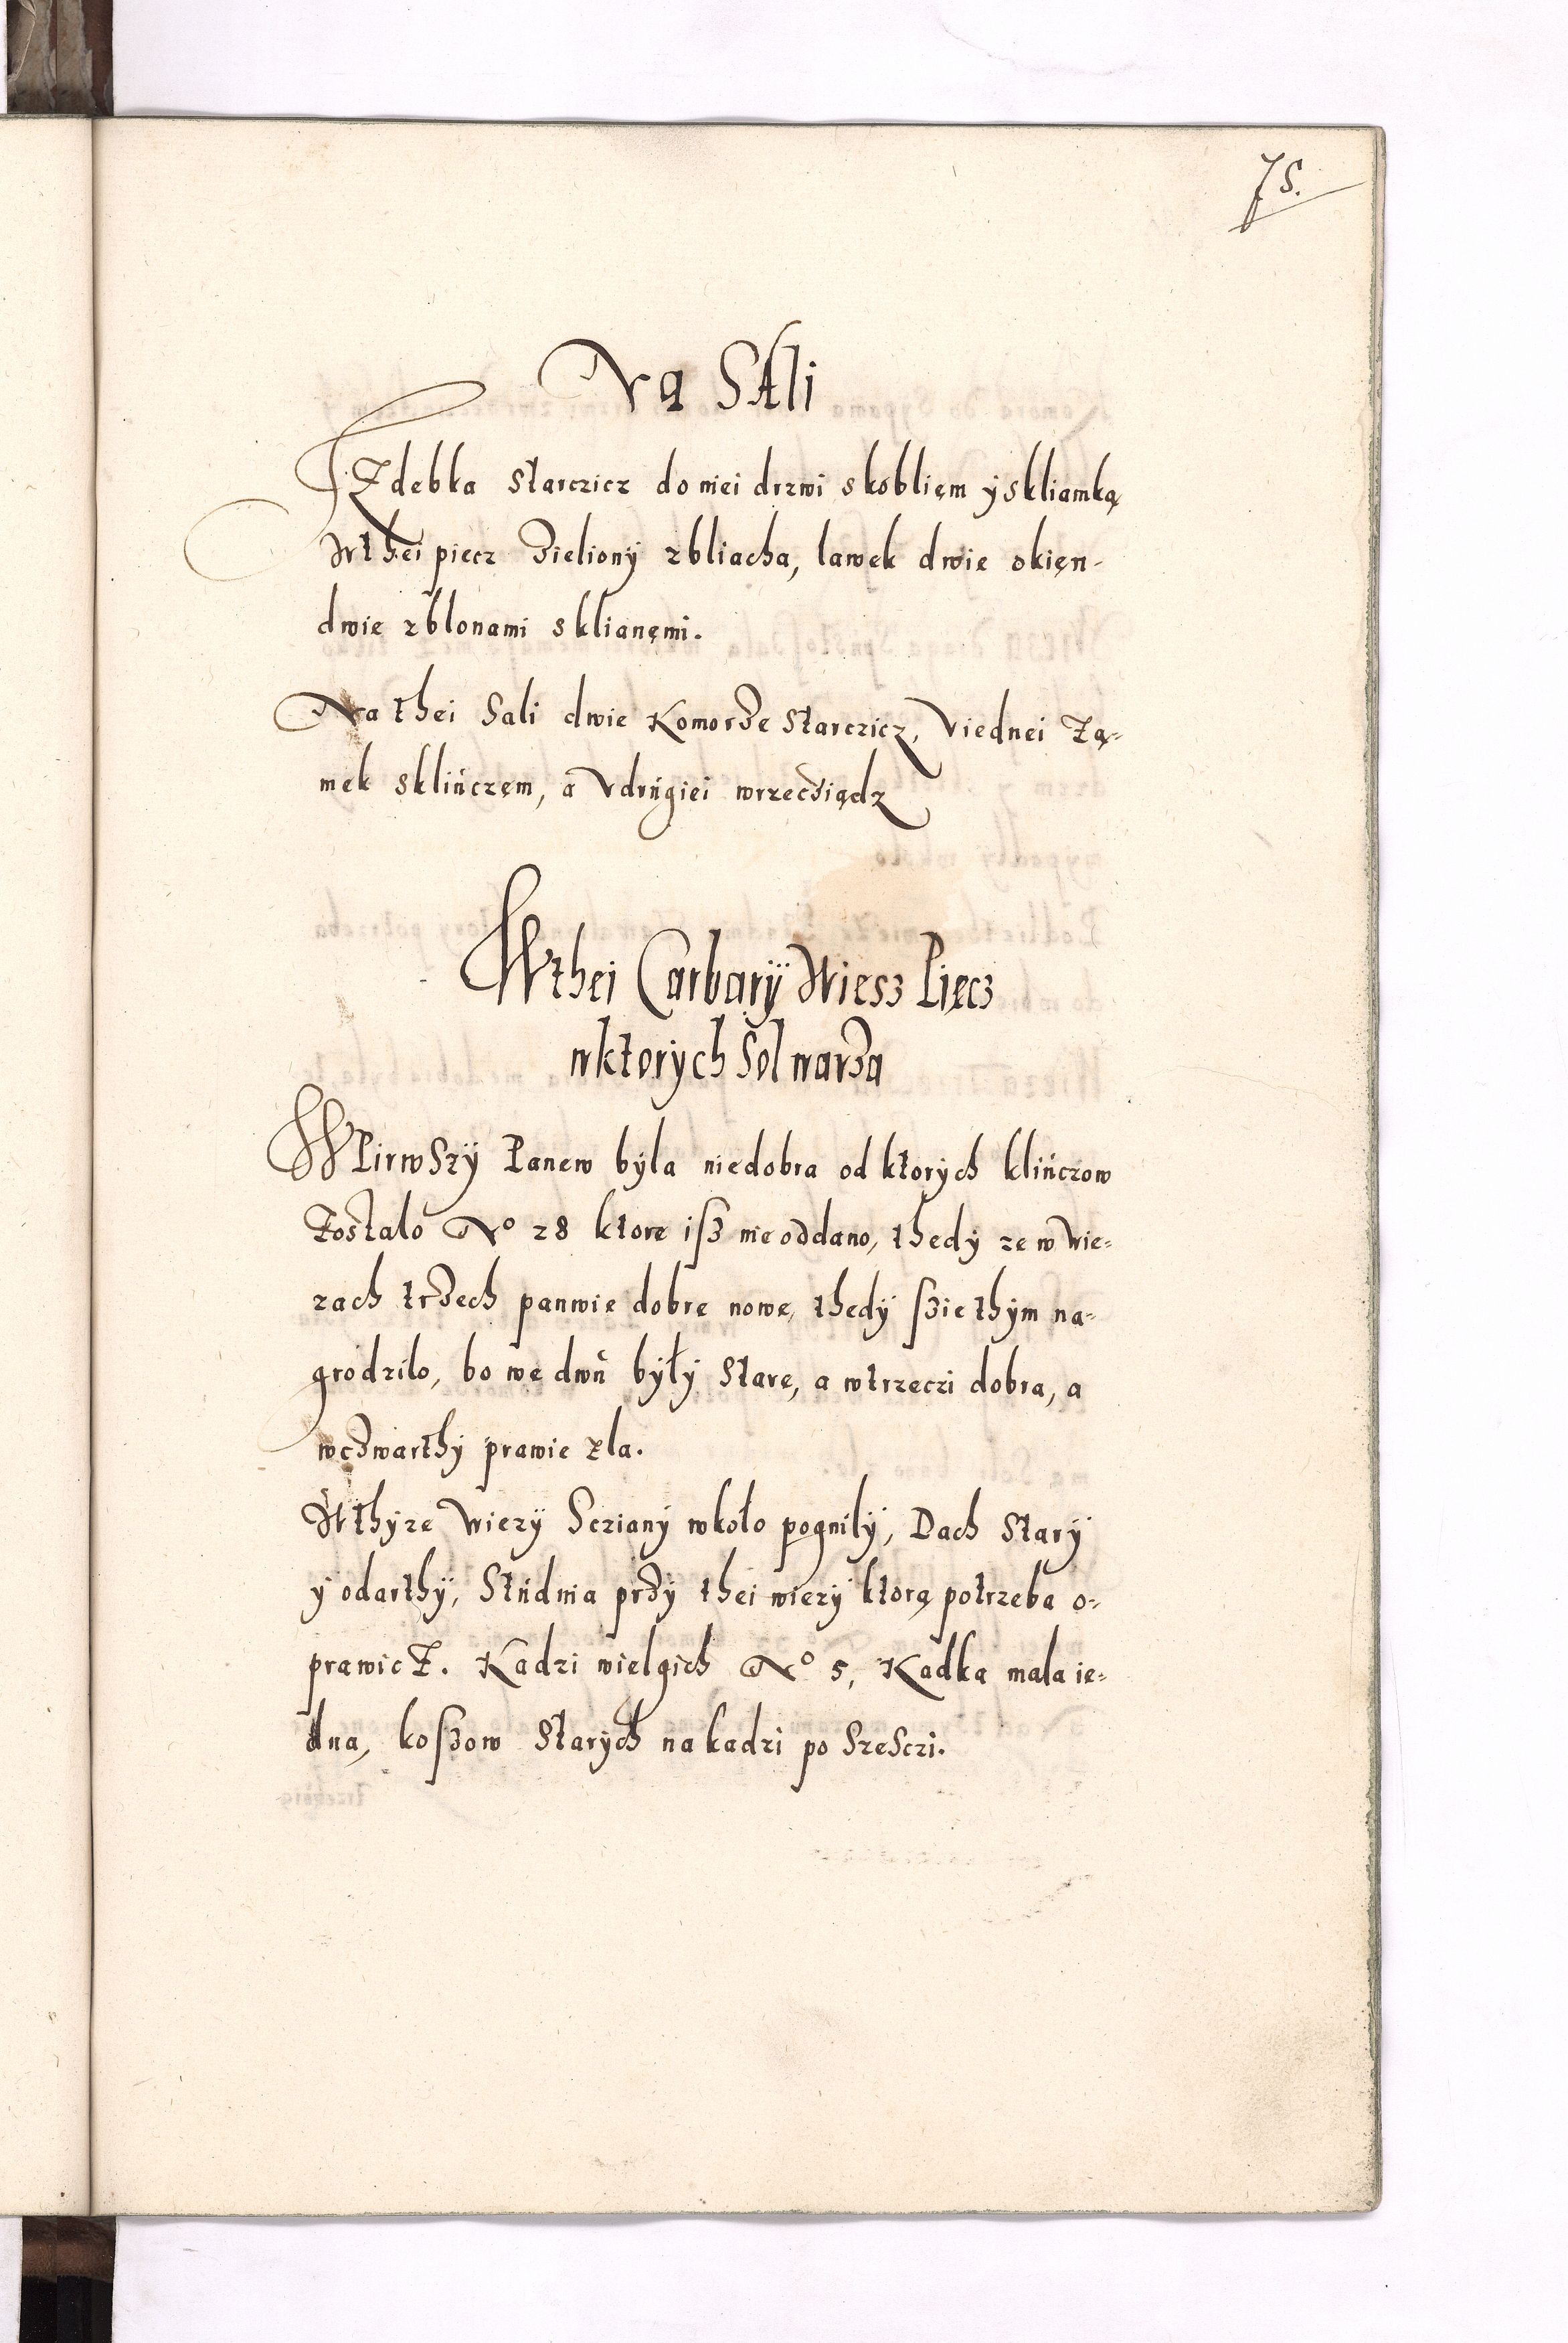 75.
Na SAli
IZdebka starczicz do niei drzwi skobliem ÿ skliamką
Wthei piecz Zieliony zbliacha, lawek dwie okien-
dwie zblonami sklianęmi.
Na thei Sali dwie Komorze starczicz, Viednei Zą-
mek sklińczęm, a Vdrugiei wrzecziądz
WThei Carbarÿ Wiesz Pięcz
wktorych Sol warza
WPirwszÿ Panew bÿla niedobra od ktorÿch klińczow
Zostalo No 28 ktore isz nie oddano, thedÿ ze w wie-
zach trzech panwie dobre nowe, thedÿ szie thÿm na-
grodzilo, bo we dwu bÿłÿ stare, a wtrzeczi dobra, a
wczwarthÿ prawie zla.
Wthÿze Wiezÿ Sczianÿ wkoło pognilÿ, Dach starÿ
ÿ odarthÿ, Studnia przÿ thei wiezÿ ktorą potrzeba o-
prawicz. Kadzi wielgich No 5, Kadka mala ie-
dna, koszow starÿch na kadzi po szesczi.